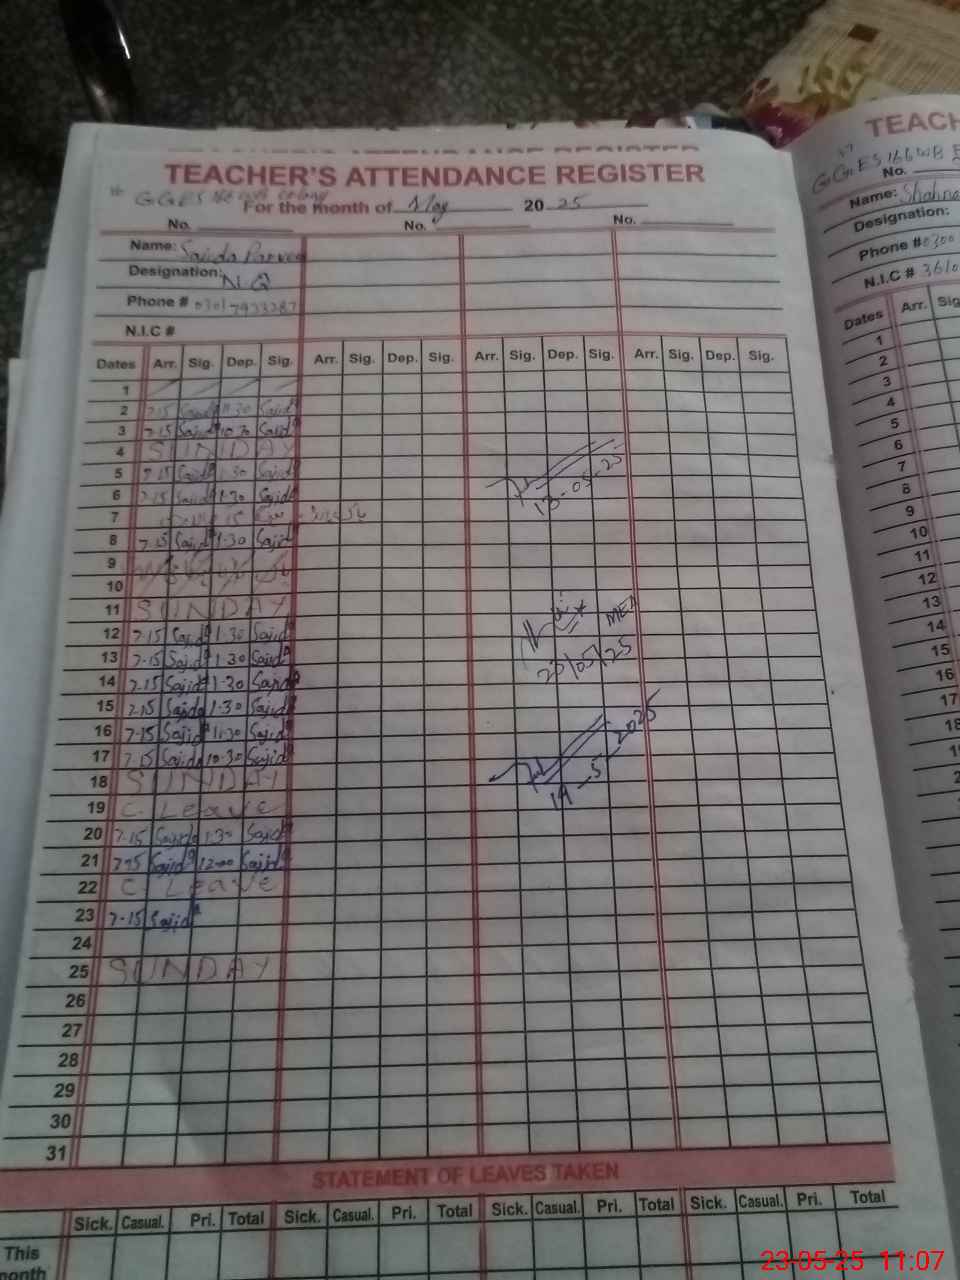 TEACHER'S ATTENDANCE REGISTER
GGES
For the month of May 2025
No. No. No.
Name: Sajida Parveen
Designation: N.Q
Phone # 0301-7933287
N.I.C #
Dates Arr. Sig. Dep. Sig. Arr. Sig. Dep. Sig. Arr. Sig. Dep. Sig. Arr. Sig. Dep. Sig.
1
2 7-15 Sajida 11-30 Sajida
3 7-15 Sajida 10-30 Sajida
4 SUNDAY
5 7-15 Sajida 1-30 Sajida
6 7-15 Sajida 1-30 Sajida
7
8 7-15 Sajida 1-30 Sajida
9
10
11 SUNDAY
12 7-15 Sajida 1-30 Sajida
13 7-15 Sajida 1-30 Sajida
14 7-15 Sajida 1-30 Sajida
15 7-15 Sajida 1-30 Sajida
16 7-15 Sajida 11-30 Sajida
17 7-15 Sajida 10-30 Sajida
18 SUNDAY
19 C. Leave
20 7-15 Sajida 1-30 Sajida
21 7-15 Sajida 12-00 Sajida
22 C. Leave
23 7-15 Sajida
24
25 SUNDAY
26
27
28
29
30
31
13-05-25
MEA
23/05/25
19-5-2025
STATEMENT OF LEAVES TAKEN
Sick. Casual. Pri. Total Sick. Casual. Pri. Total Sick. Casual. Pri. Total Sick. Casual. Pri. Total
This
month
TEACH
GGES 166 WB
No.
Name: Shahna
Designation:
Phone # 0300
N.I.C # 3610
Dates Arr. Sig
1
2
3
4
5
6
7
8
9
10
11
12
13
14
15
16
17
18
23-05-25 11:07